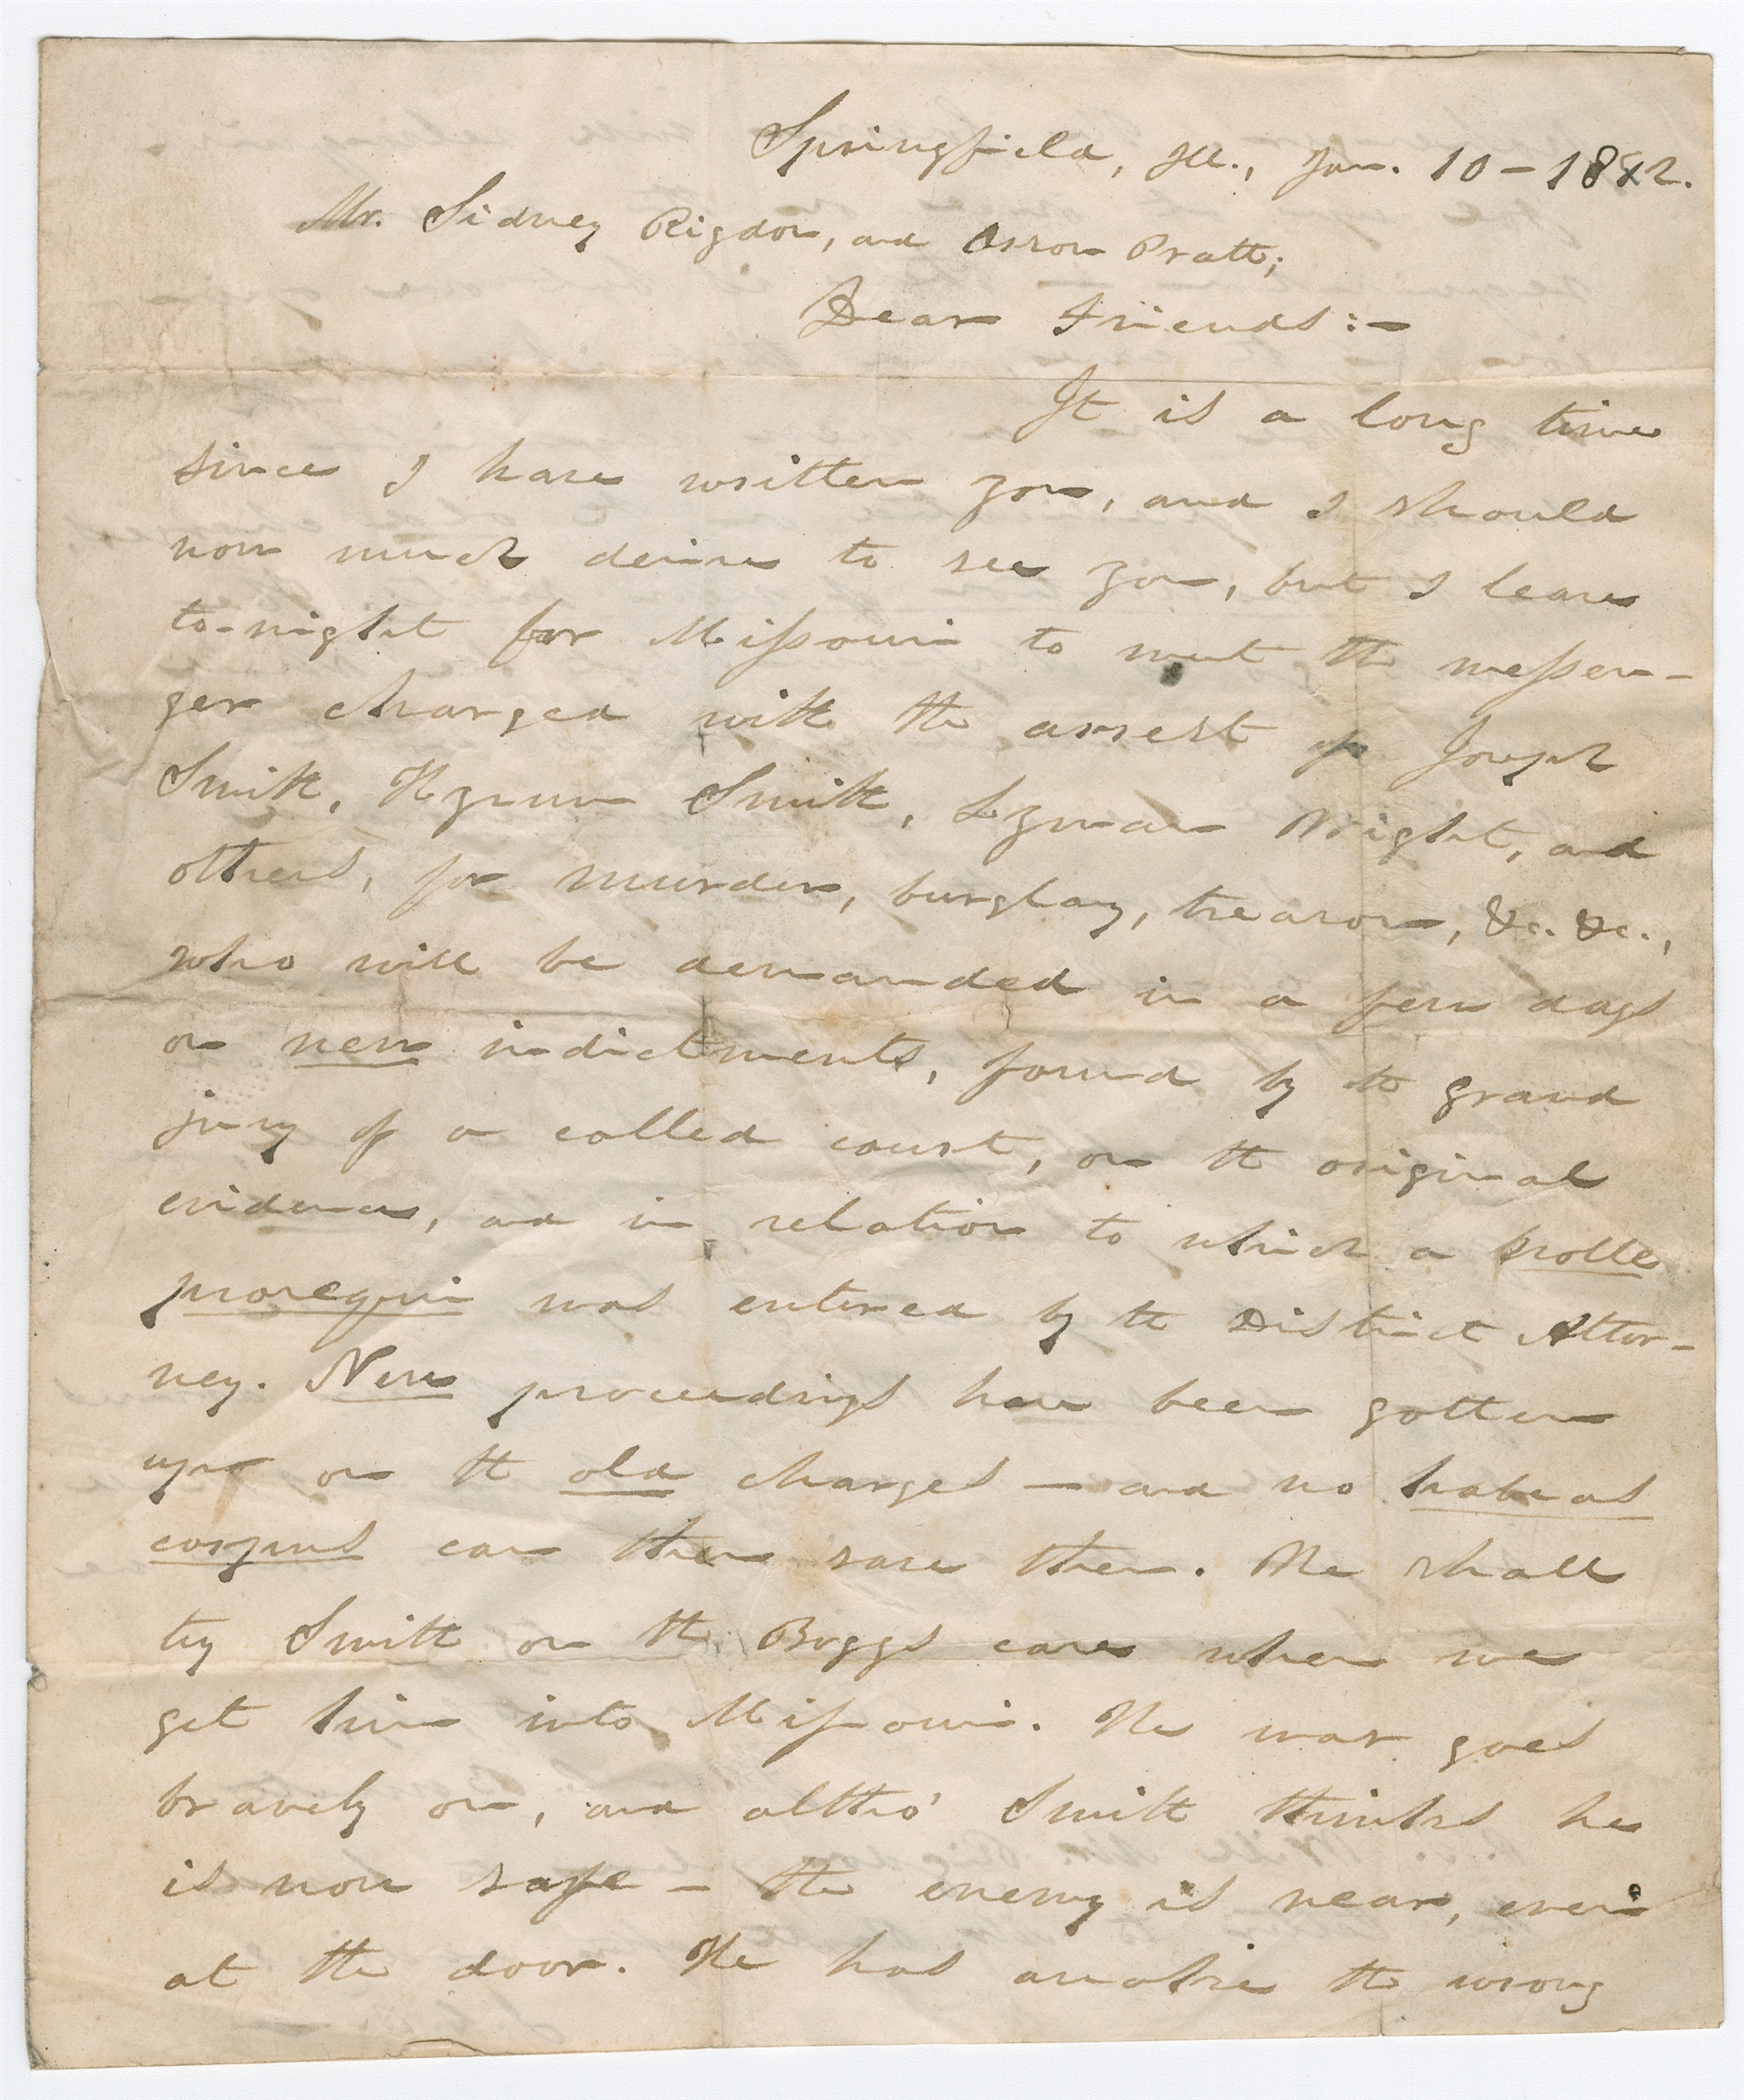 Springfield, Ill., Jan. 10 - 1842.
Mr. Sidney Rigdon, and Orson Pratt;
Dear Friends:-
It is a long time
since I have written you, and I should
now much desire to see you, but I leave
to-night for Missouri to meet the messen-
ger charged with the arrest of Joseph
Smith, Hyrum Smith, Lyman Wight, and
others, for murder, burglary, treason, &c. &c.,
who will be demanded in a few days
on new indictments, found by the grand
jury of a called court, on the original
evidence, and in relation to which a nolle
prosequi was entered by the District Attor-
ney. New proceedings have been gotten
up on the old charges - and no habeas
corpus can then save them. We shall
try Smith on the Boggs case when we
get him into Missouri. The war goes
bravely on, and altho' Smith thinks he
is now safe - the enemy is near, even
at the door. He has awoke the wrong